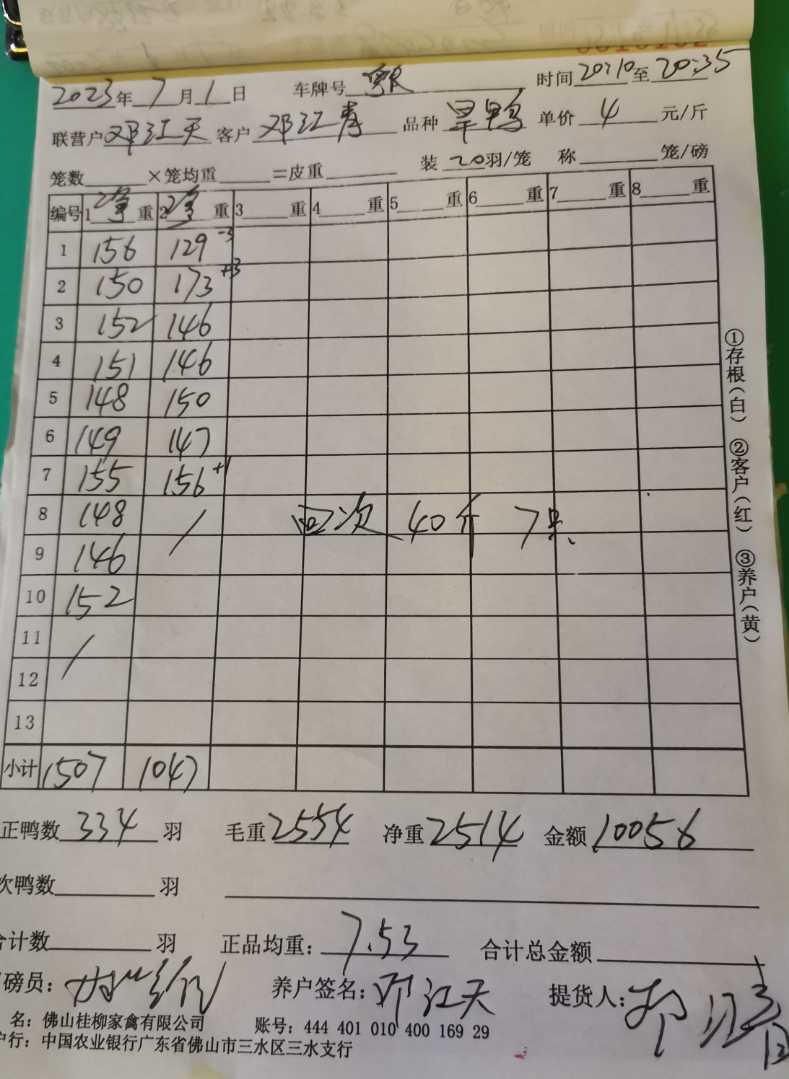 2023年 7月1日 车牌号 时间20:10至20:35
联营户 邓江天 客户 邓江青 品种 旱鸭 单价 4 元/斤
笼数 ×笼均重 =皮重 装 20羽/笼 称 笼/磅
编号 1 2净 重 2 2净 重 3 重 4 重 5 重 6 重 7 重 8 重
1 156 129 -3
2 150 173 +3
3 152 146
4 151 146
5 148 150
6 149 147
7 155 156 +1
8 148 / 回次 40斤 7只
9 146
10 152
11 /
12
13
小计 1507 1047
正鸭数 334 羽 毛重 2554 净重 2514 金额 10056
次鸭数 羽
合计数 羽 正品均重: 7.53 合计总金额
磅员: 养户签名: 邓江天 提货人: 邓江青
名: 佛山桂柳家禽有限公司 账号: 444 401 010 400 169 29
户行: 中国农业银行广东省佛山市三水区三水支行
①存根(白) ②客户(红) ③养户(黄)